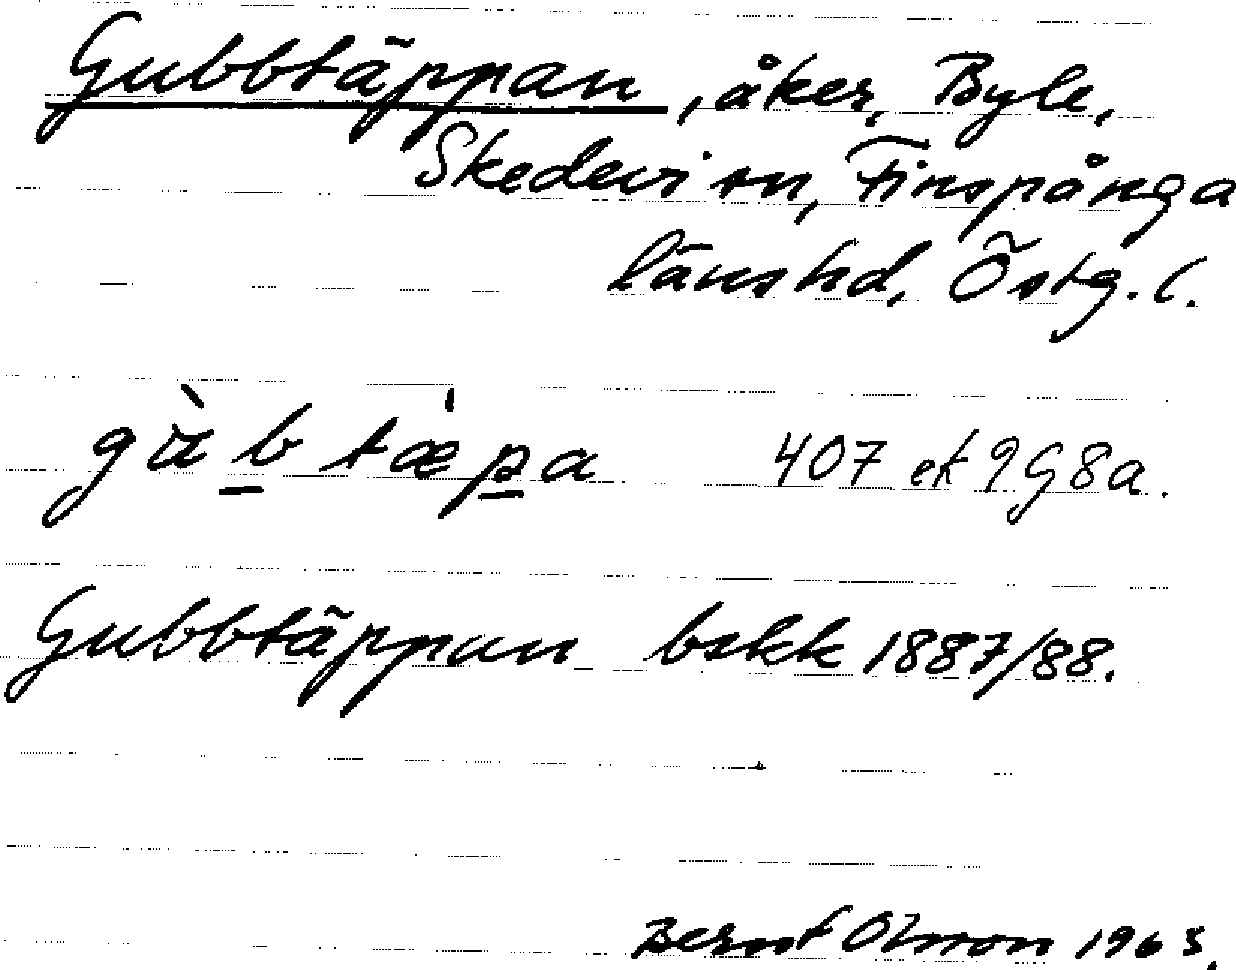 Gubbtäppan, åker, Byle,
Skedevi sn, Finspånga
länshd, Östg. l.
gùb tæ̀pa 407 ek 9G8a.
Gubbtäppan bskk 1887/88.
Bernt Olsson 1963.